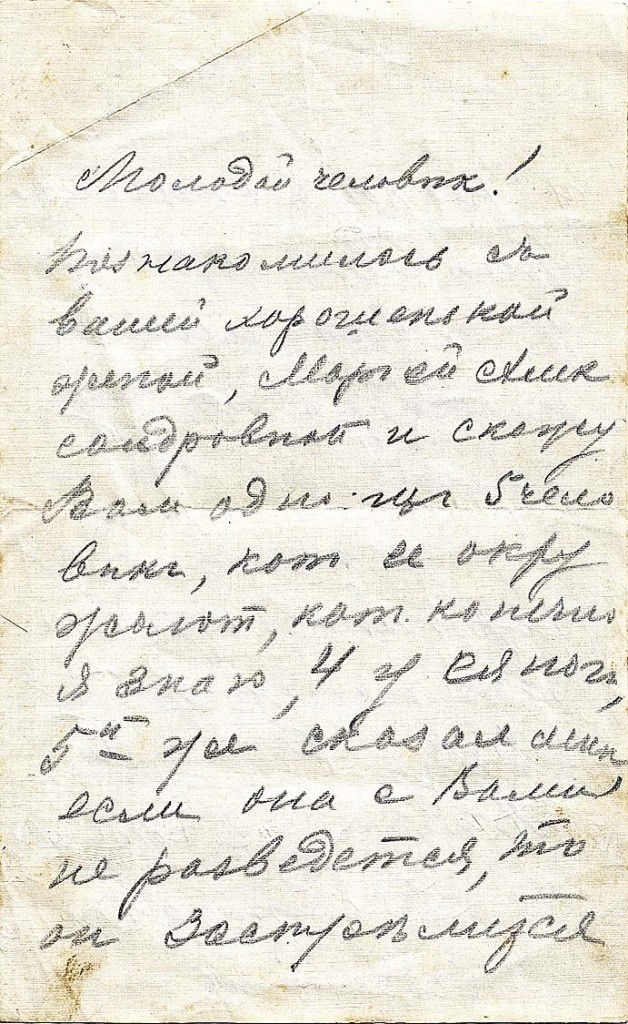 Молодой человѣк!
Познакомилась съ
вашей хорошенькой
женой, Марьей Алек
сандровной и скажу
Вам одно из 5 чело
вѣк, кот. ее окру
жают, кот. конечно
я знаю, 4 у ея ног,
5й же сказал мнѣ
если она с Вами
не разведется, то
он застрѣлится